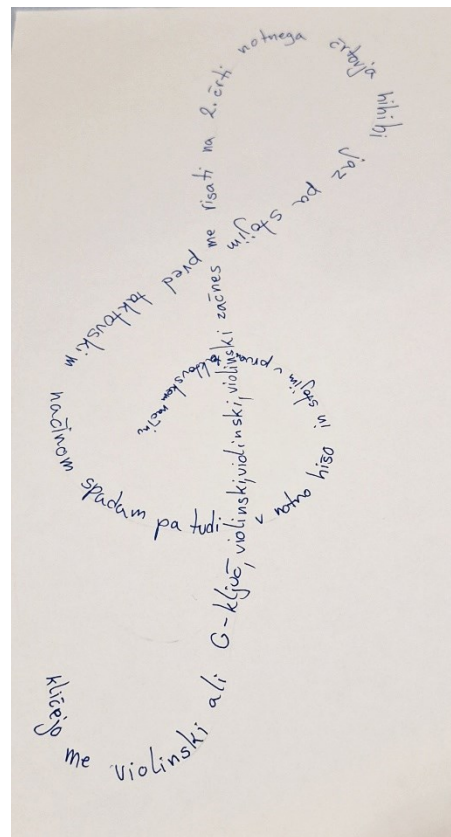 kličejo me violinski ali G-ključ, violinski, violinski, violinski začneš me risati na 2. črti notnega črtovja hihihi jaz pa stojim pred taktovskim načinom spadam pa tudi v notno hišo in stojim v prvem taktovskem